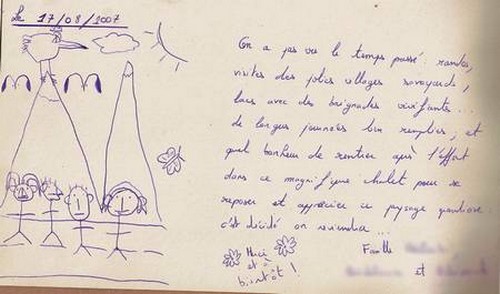 Le 17/08/2007
On a pas vu le temps passé : randos,
visites des jolies villages savoyards,
lacs avec des baignades vivifiantes...
de longues journées bien remplies, et
quel bonheur de rentrer après l'effort
dans ce magnifique chalet pour se
reposer et apprécier ce paysage grandiose.
c'est décidé on reviendra...
Merci
et à
bientôt !
Famille
et